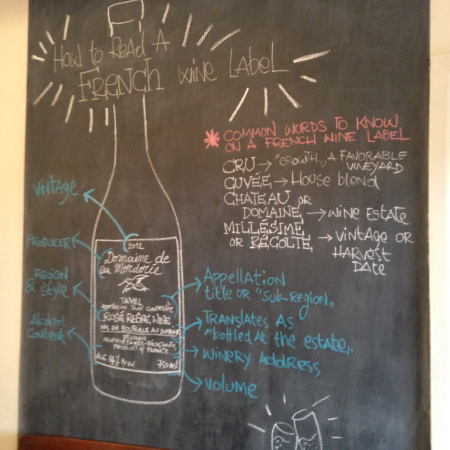 How to Read A
FRENCH Wine Label
* COMMON WORDS TO KNOW
ON A FRENCH WINE LABEL
CRU → "GROWTH", A FAVORABLE
VINEYARD
CUVÉE → House blend
CHÂTEAU OR
DOMAINE → WINE ESTATE
MILLÉSIME
OR RÉCOLTE → VINTAGE OR
HARVEST
DATE
Vintage
PRODUCER
REGION
& Style
Alcohol
Content
2012
Domaine de
la Mordorée
TAVEL
ROSÉ RHÔNE WINE
MIS EN BOUTEILLE AU DOMAINE
PRODUCT of FRANCE
750 ml
Appellation
title or "Sub-Region"
Translates as
"bottled at the estate"
WINERY ADDRESS
Volume